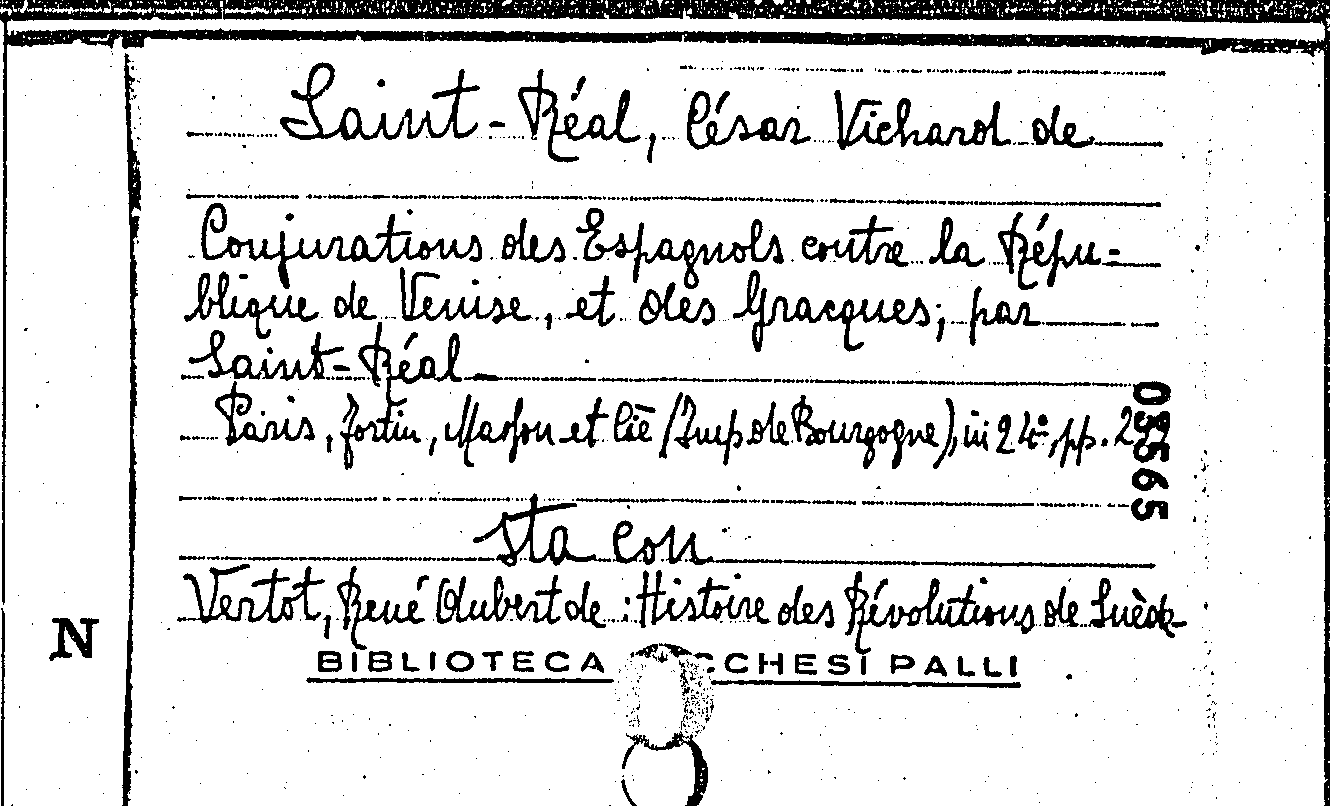 Saint-Réal, César Vichard de
Conjurations des Espagnols contre la Répu-
blique de Venise, et des Gracques; par
Saint-Réal -
Paris, Fortin, Masson et Cie (Imp. de Bourgogne), in 24º, pp.
sta con
Vertot, René Aubert de : Histoire des Révolutions de Suède
N
BIBLIOTECA CCHESI PALLI